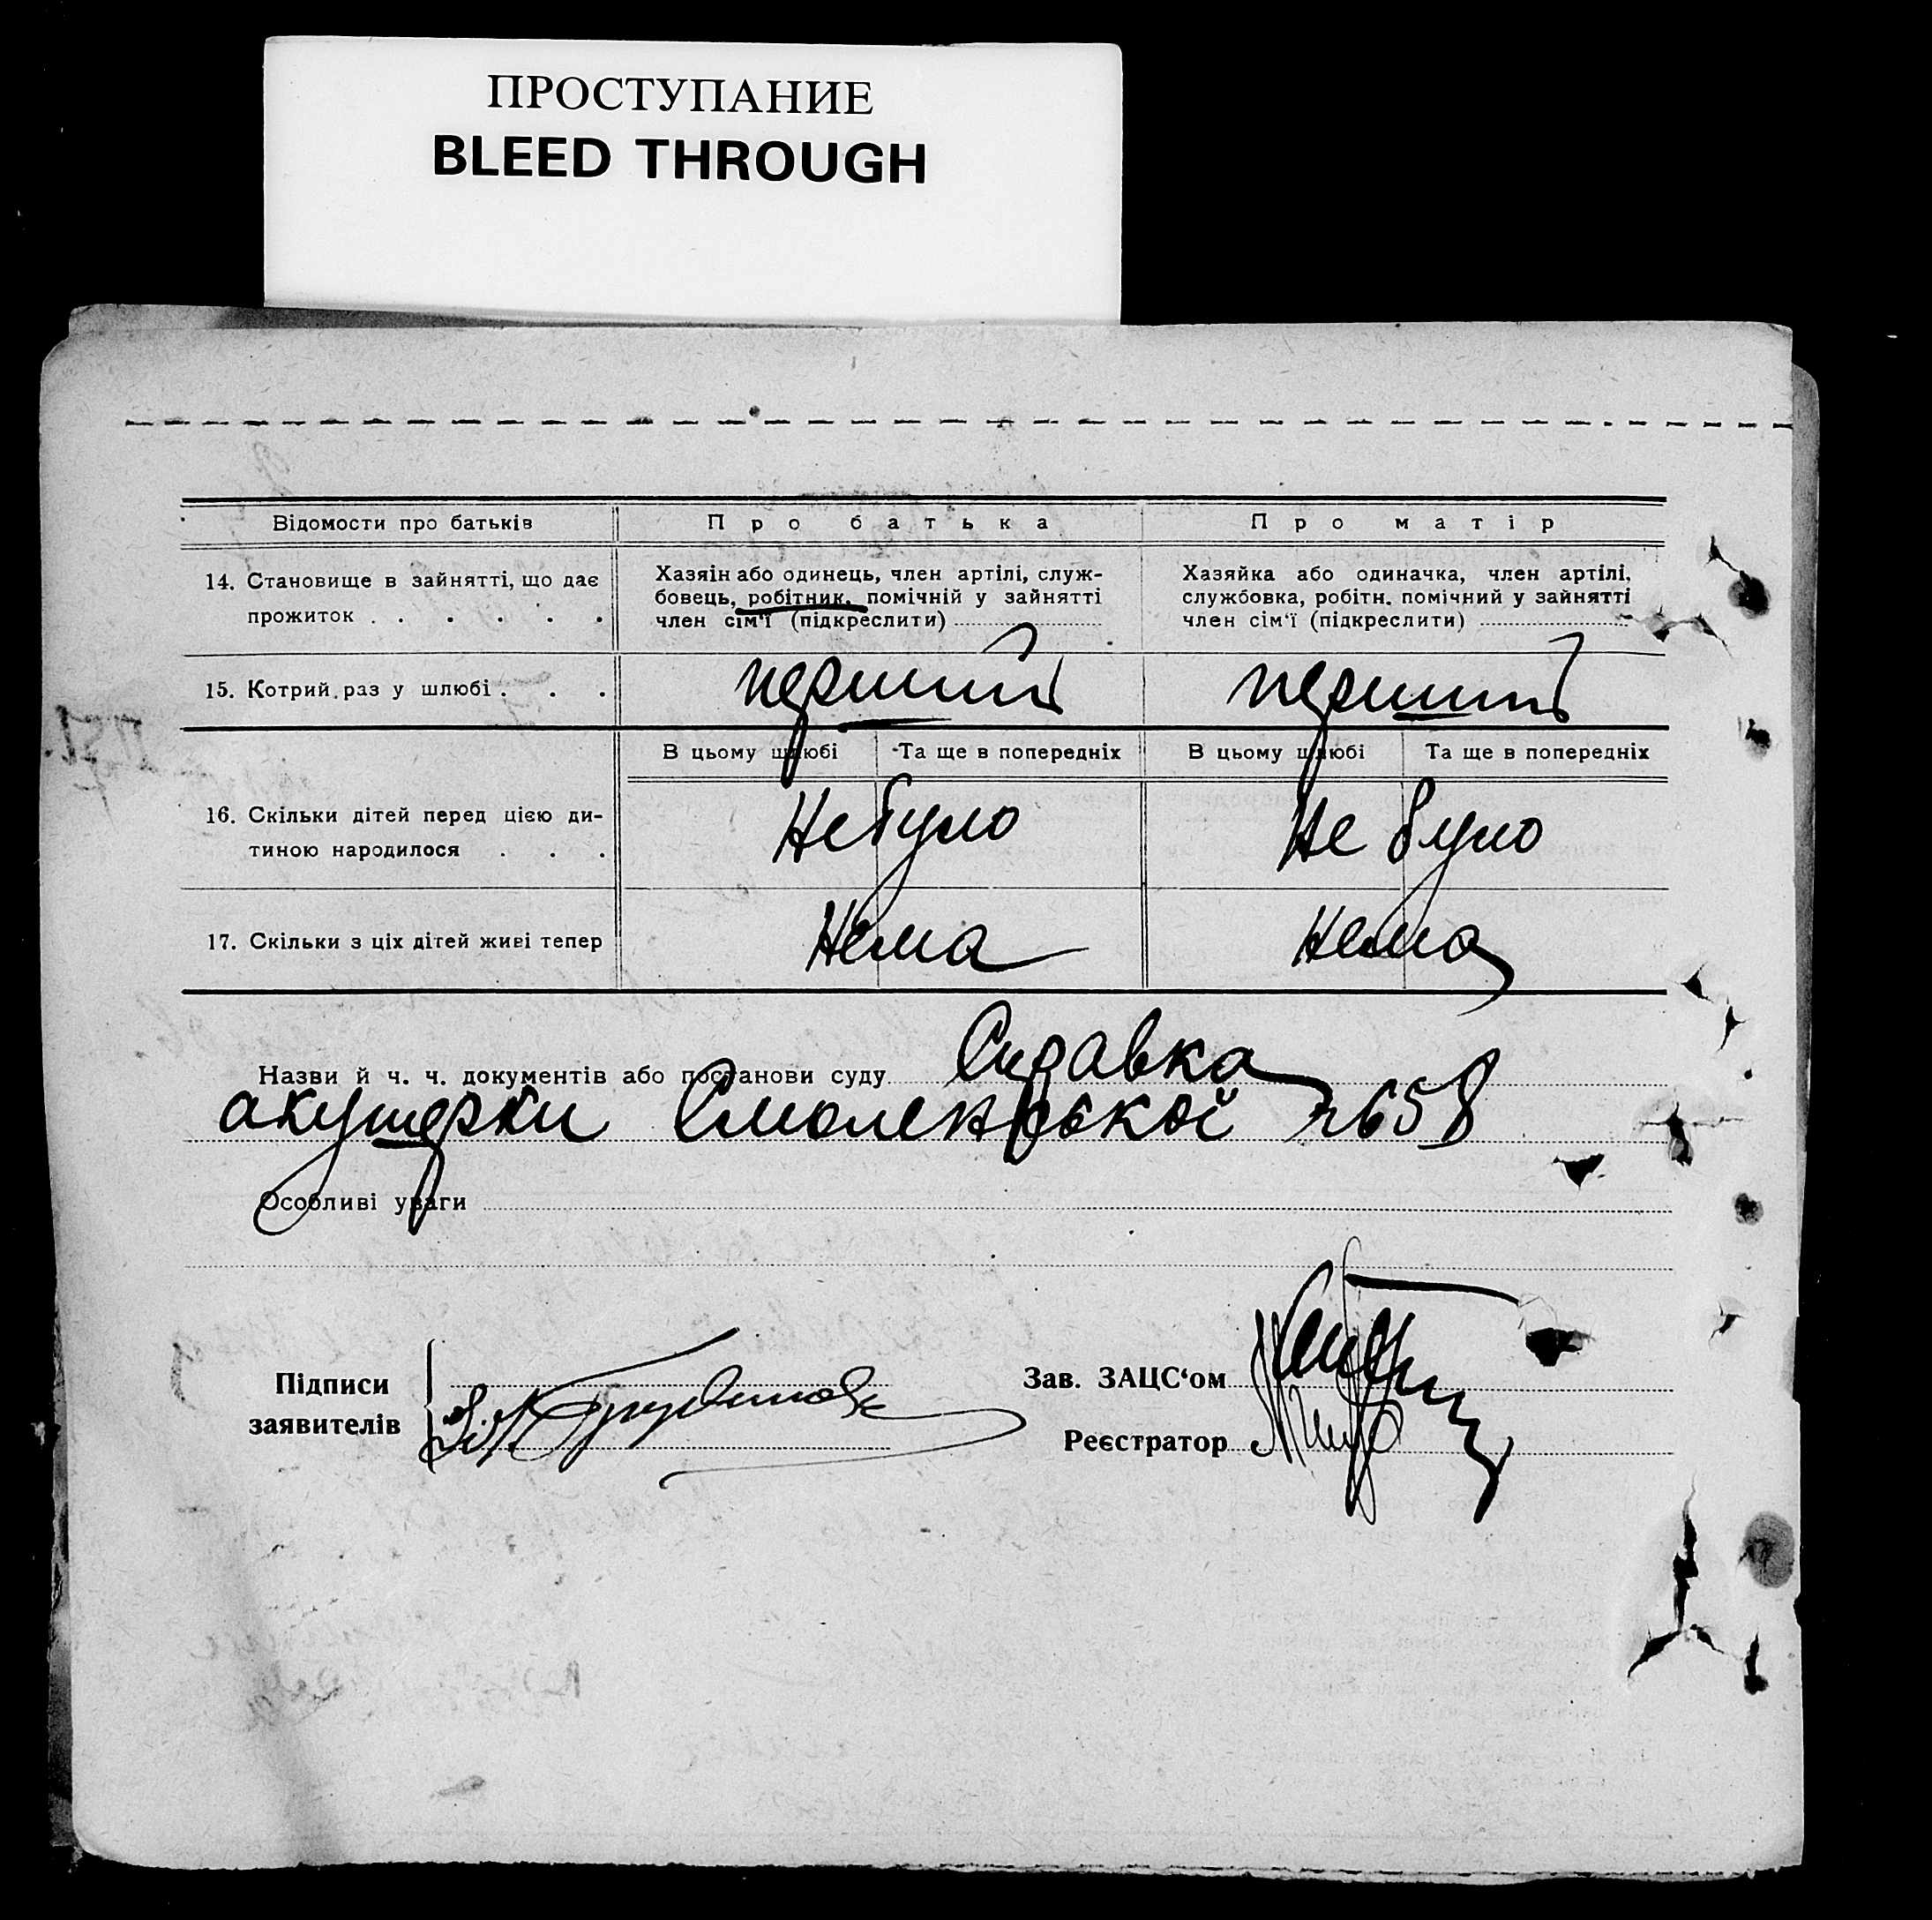 ПРОСТУПАНИЕ
BLEED THROUGH
Відомости про батьків
Про батька
Про матір
14. Становище в зайнятті, що дає
прожиток . . . . . .
Хазяїн або одинець, член артілі, служ-
бовець, робітник, помічній у зайнятті
член сім'ї (підкреслити)
Хазяйка або одиначка, член артілі,
службовка, робітн. помічний у зайнятті
член сім'ї (підкреслити)
15. Котрий раз у шлюбі . . .
перший
перший
В цьому шлюбі
Та ще в попередніх
В цьому шлюбі
Та ще в попередніх
16. Скільки дітей перед цією ди-
тиною народилося . . .
Не було
Не було
17. Скільки з ціх дітей живі тепер
Нема
Нема
Назви й ч. ч. документів або постанови суду Справка
акушерки Смоленської 658
Особливі уваги
Підписи
заявителів
Зав. ЗАЦС‘ом
Реєстратор